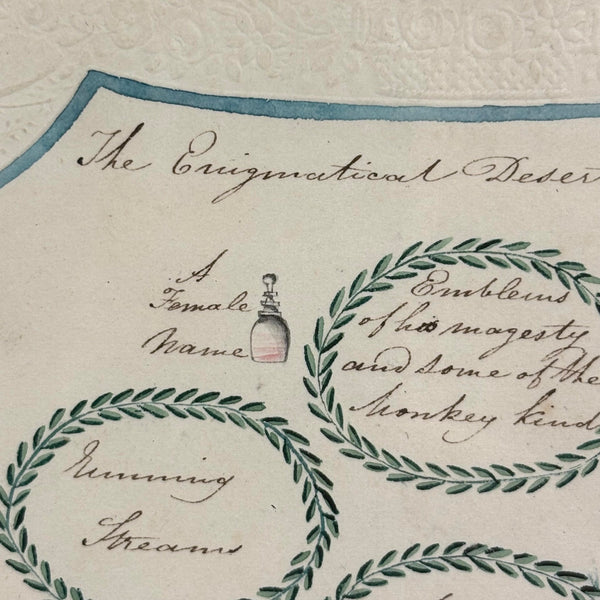 The Enigmatical Desert
A
Female
Name
Emblems
of his magesty
and some of the
Monkey kind
Running
Streams